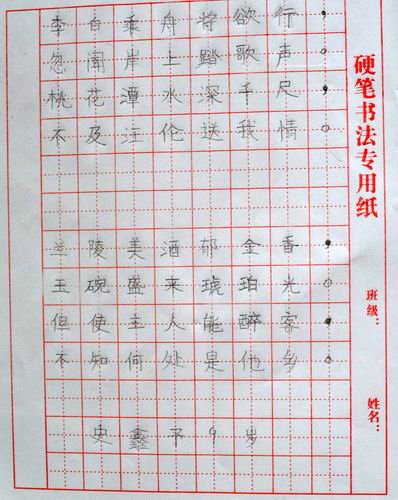 李白乘舟将欲行，
忽闻岸上踏歌声。
桃花潭水深千尺，
不及汪伦送我情。
兰陵美酒郁金香，
玉碗盛来琥珀光。
但使主人能醉客，
不知何处是他乡。
史鑫予9岁
硬笔书法专用纸
班级：
姓名：